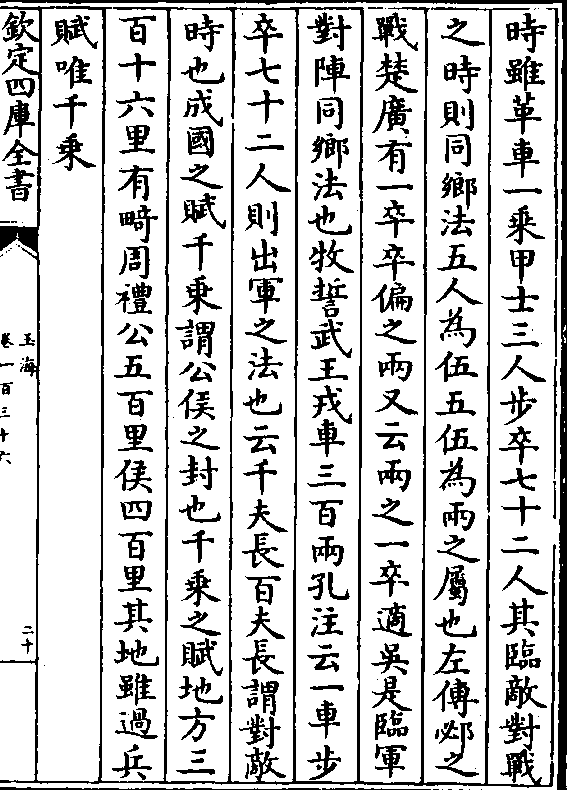 時雖革車一乘甲士三人步卒七十二人其臨敵對戰
之時則同鄉法五人為伍五伍為兩之屬也左傳邲之
戰楚廣有一卒卒偏之兩又云兩之一卒適吳是臨軍
對陣同鄉法也牧誓武王戎車三百兩孔注云一車步
卒七十二人則出軍之法也云千夫長百夫長謂對敵
時也成國之賦千乘謂公侯之封也千乘之賦地方三
百十六里有畸周禮公五百里侯四百里其地雖過兵
賦唯千乘
欽定四庫全書
玉海
卷一百三十六
二十